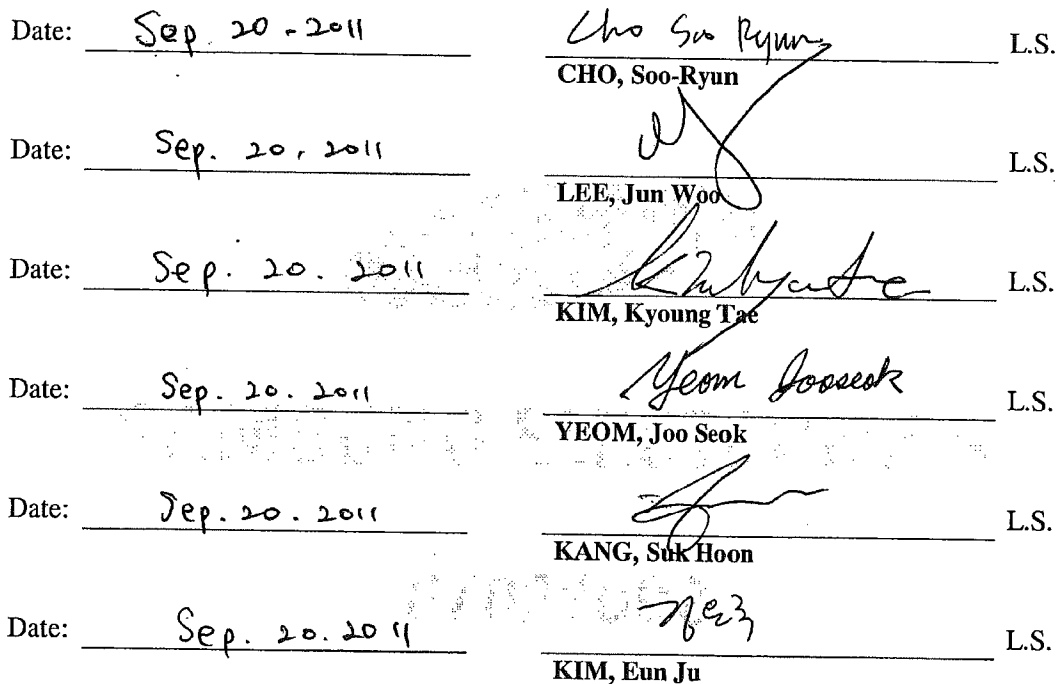 Date: Sep. 20 - 2011 Cho Soo Ryun L.S.
CHO, Soo-Ryun
Date: Sep. 20, 2011 L.S.
LEE, Jun Woo
Date: Sep. 20. 2011 L.S.
KIM, Kyoung Tae
Date: Sep. 20. 2011 Yeom Jooseok L.S.
YEOM, Joo Seok
Date: Sep. 20. 2011 L.S.
KANG, Suk Hoon
Date: Sep. 20. 2011 L.S.
KIM, Eun Ju